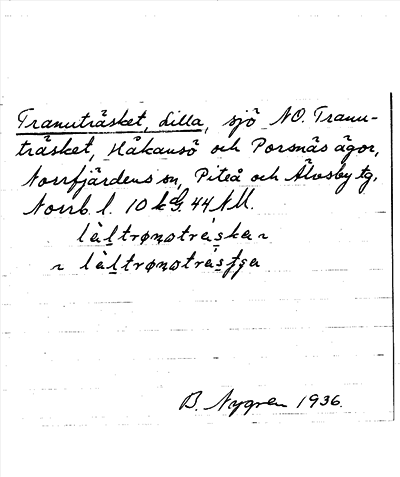 Tranuträsket, Lilla, sjö NO. Tranu-
träsket, Håkansö och Porsnäs ägor,
Norrfjärdens sn, Piteå och Älvsby tg,
Norrb. l. 10 k G. 44 NM.
làl̲trønɷtrás̲ka ~
~ làl̲trønɷtrás̲tʃa
B. Nygren 1936.